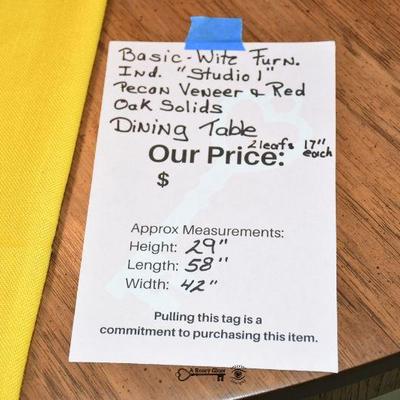 Basic-Witz Furn.
Ind. "Studio 1"
Pecan Veneer & Red
Oak Solids
Dining Table
2 leafs 17" each
Our Price:
$
Approx Measurements:
Height: 29"
Length: 58"
Width: 42"
Pulling this tag is a
commitment to purchasing this item.